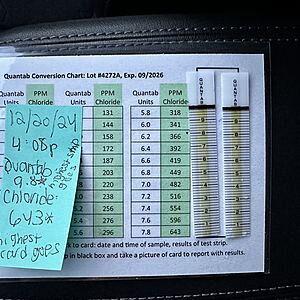 Quantab Conversion Chart: Lot #4272A, Exp. 09/2026
Quantab Units PPM Chloride Quantab Units PPM Chloride Quantab Units PPM Chloride
131 5.8 318
144 6.0 341
158 6.2 366
172 6.4 392
187 6.6 419
203 6.8 449
220 7.0 482
238 7.2 516
256 7.4 554
276 7.6 596
5.6 296 7.8 643
to card: date and time of sample, results of test strip.
in black box and take a picture of card to report with results.
12/20/24
4:08p
Quantab
9.8*
highest strip goes
Chloride:
643*
highest
card goes
QUANTAB
QUANTAB